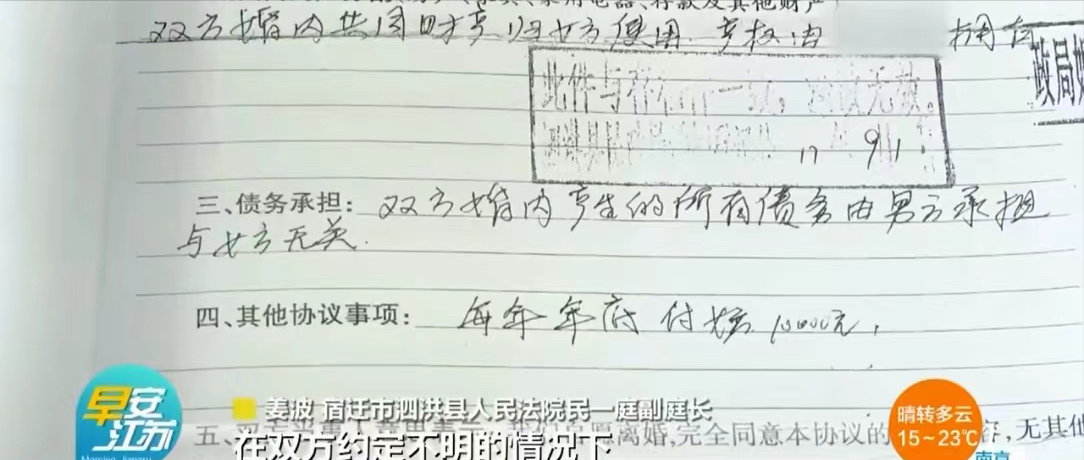 家用电器、存款及其他财产
双方婚内共同财产归女方使用. 产权由 拥有
政局
此件与 一致,
17 9 1
三、债务承担: 双方婚内产生的所有债务由男方承担
与女方无关.
四、其他协议事项: 每年年底付 10000元,
早安江苏
姜波 宿迁市泗洪县人民法院民一庭副庭长
在双方约定不明的情况下
五、 离婚,完全同意本协议的 容,无其他
晴转多云
15~23℃
南京